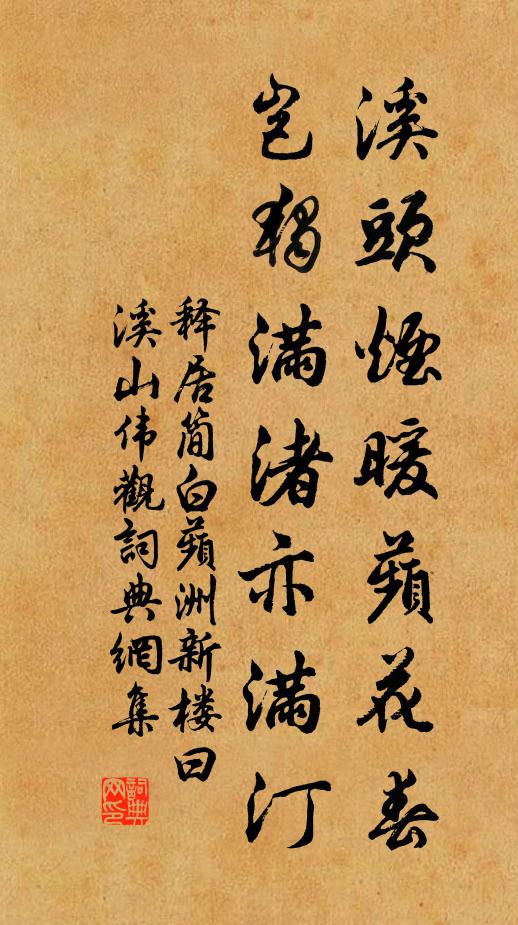 溪頭煙暖蘋花春
豈獨滿渚亦滿汀
释居简白蘋洲新楼曰
溪山伟觀詞典網集
詞典网印